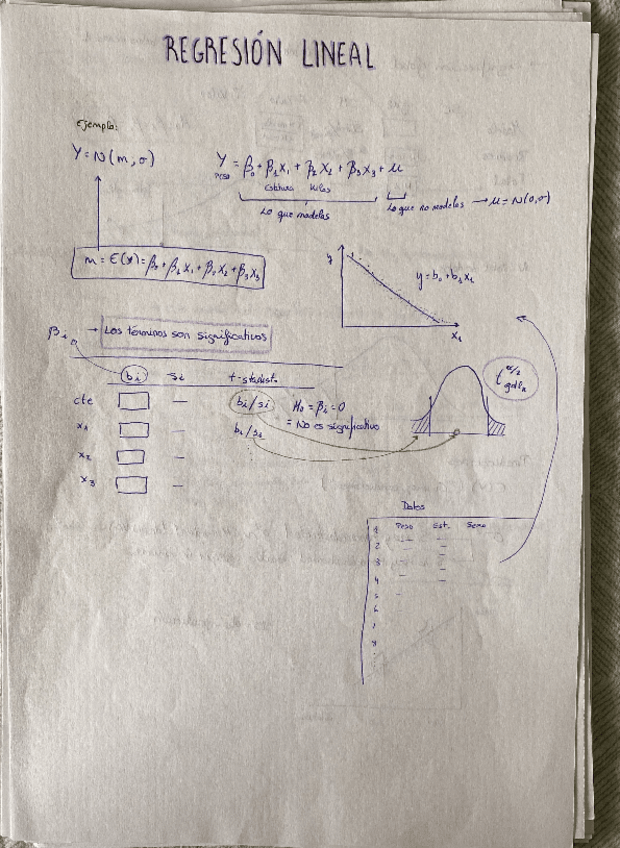 REGRESIÓN LINEAL
Ejemplo:
Y = N(m, σ)
Y = β₀ + β₁X₁ + β₂X₂ + β₃X₃ + u
Peso
Estatura Kilos
Lo que modelas
Lo que no modelas → u = N(0, σ)
m = E(Y) = β₀ + β₁X₁ + β₂X₂ + β₃X₃
y
X₁
→ Los términos son significativos
bi si t-stadist.
cte — bi/si H₀ = βi = 0
= No es significativo
x₁ — bi/si
x₂ —
x₃ —
Datos
Peso Est.
1
2
3
4
5
6
7
8